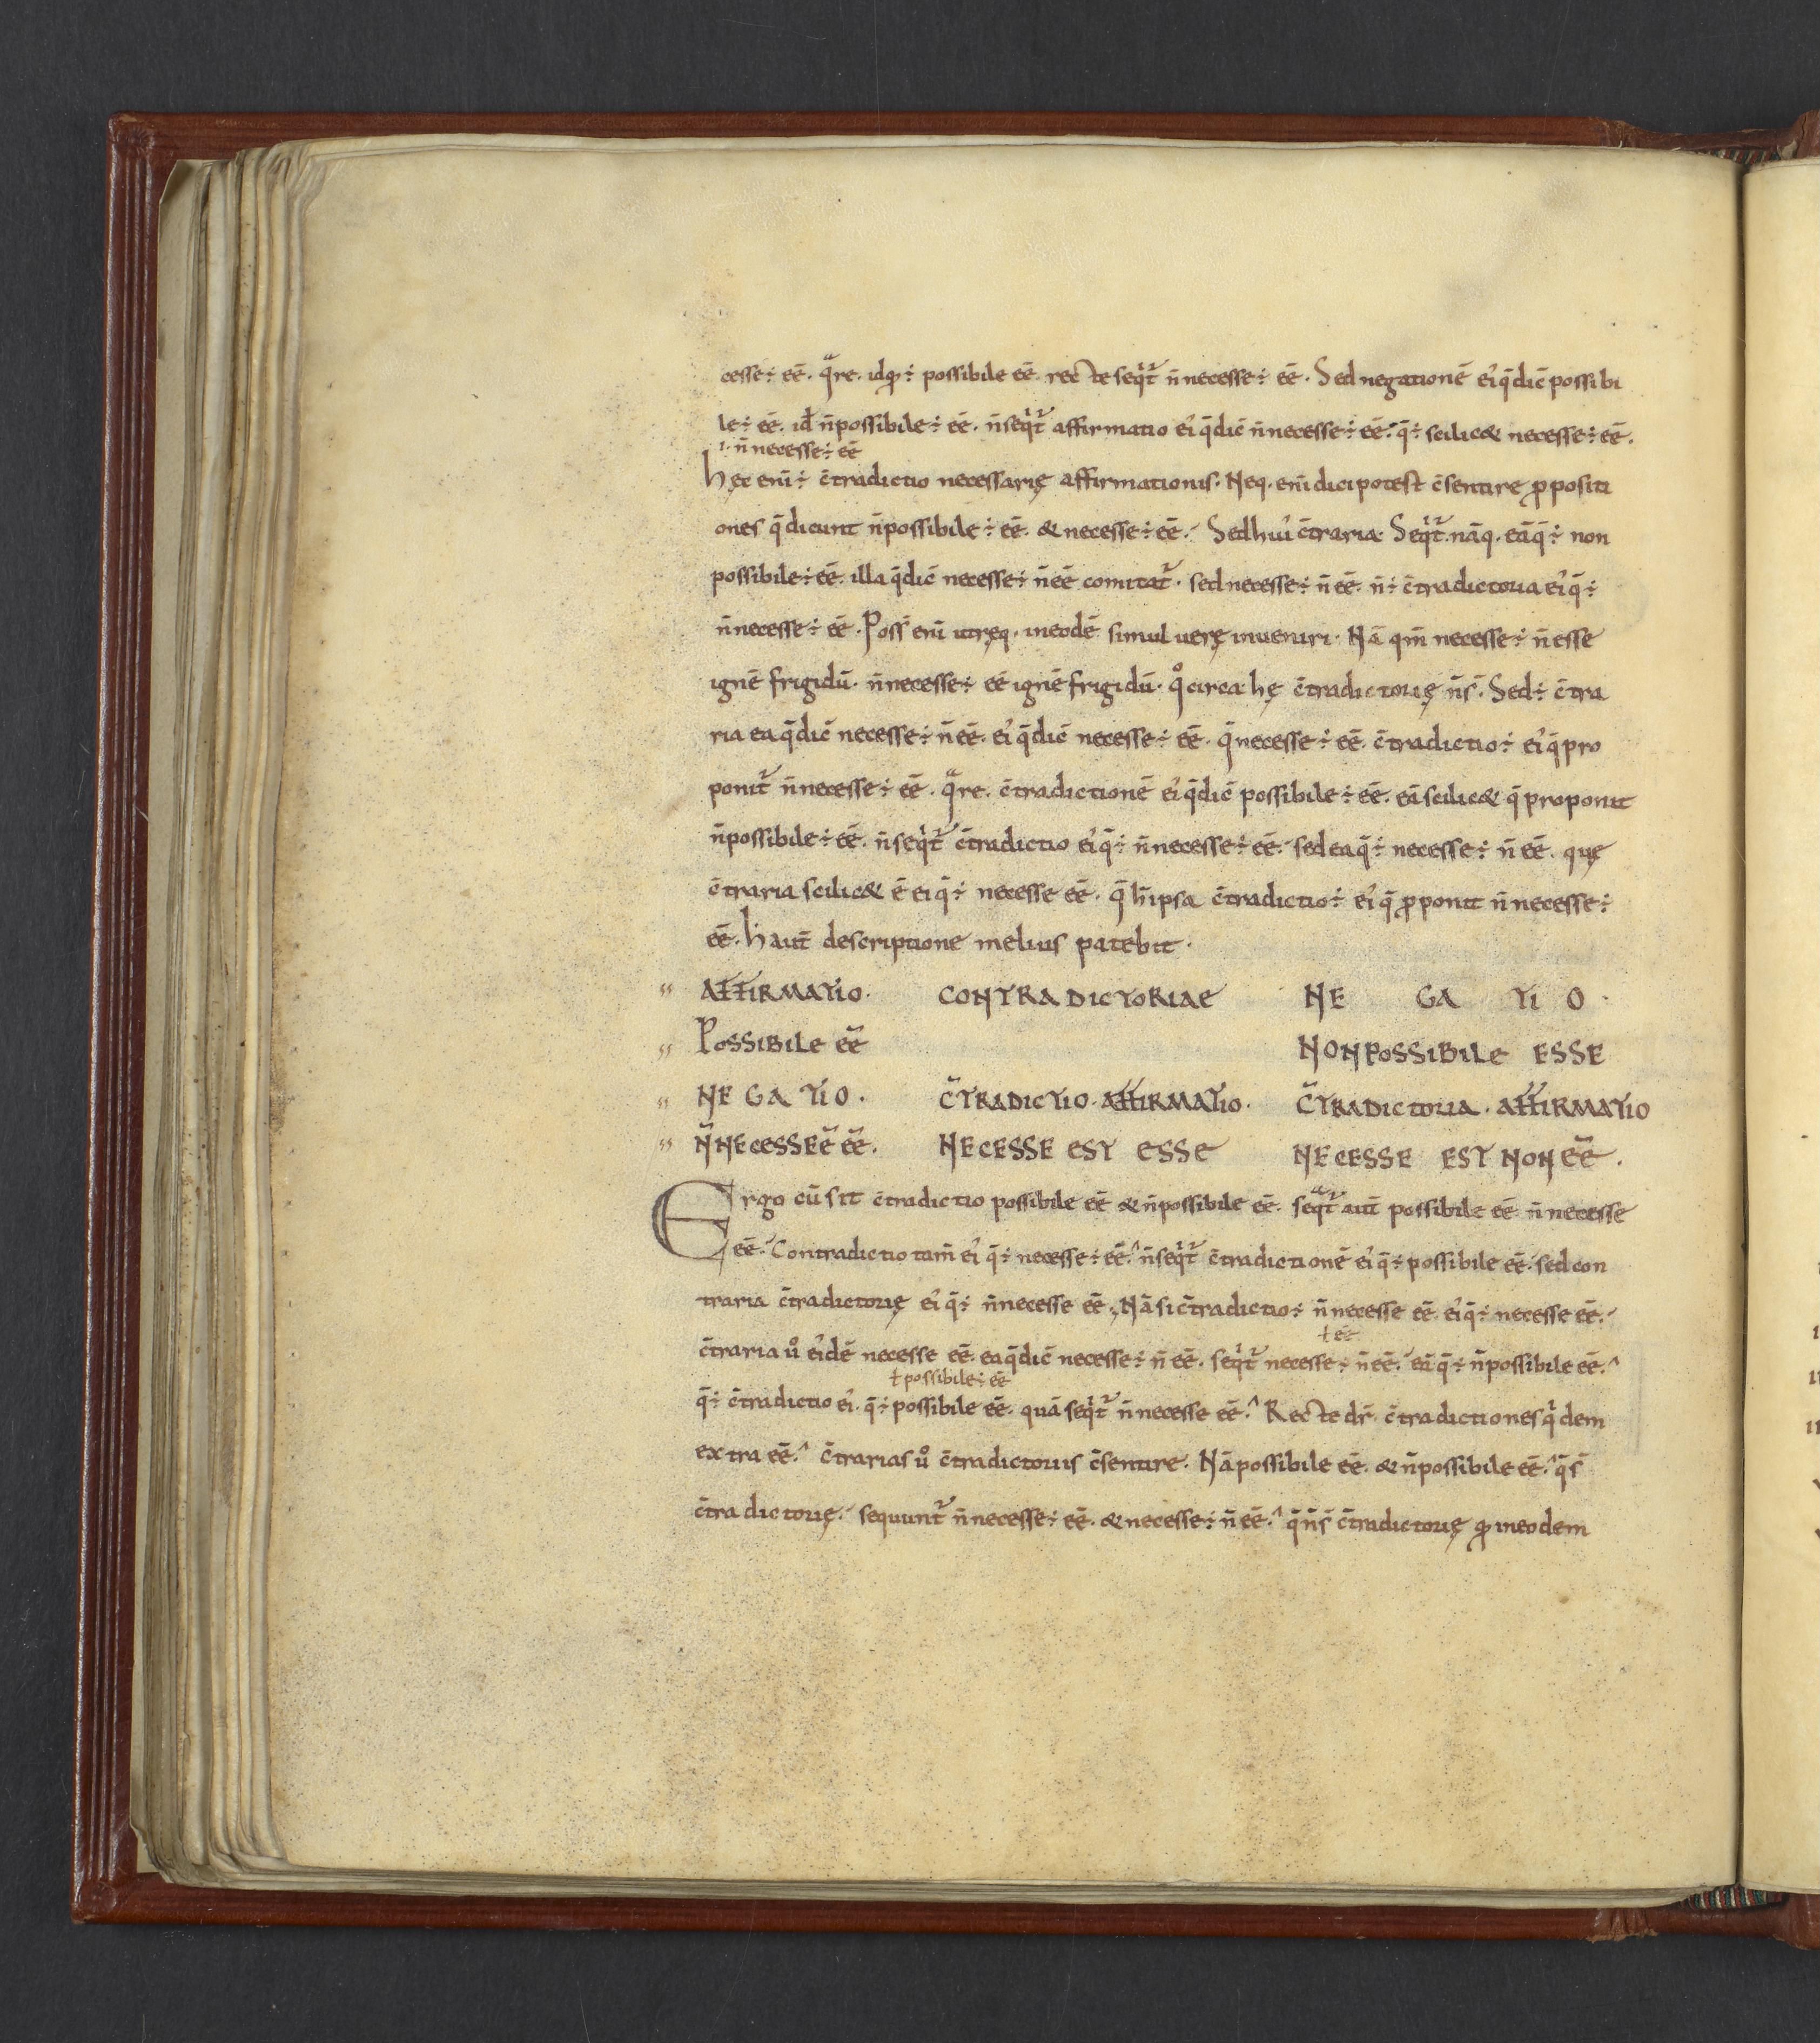 cesse ÷ eē. qᵃre. idqđ ÷ possibile eē. recte seqⁱt̃ n̄ necesse ÷ eē. Sed negationē ei' q̄ dic̄ possibi
le ÷ eē. id n̄ possibile ÷ eē. n̄ seqⁱt̃ affirmatio ei' q̄ dic̄ n̄ necesse ÷ eē. q̄ ÷ scilic& necesse ÷ eē.
i. n̄ necesse ÷ eē
hęc eni ÷ c̄tradictio necessarię affirmationis. Neq. eni dici potest c̄sentire ꝓpositi
ones q̄ dicunt n̄ possibile ÷ eē. & necesse ÷ eē. Sed hui' c̄traria. Seqⁱt̃. nāq. eā q̄ ÷ non
possibile ÷ eē. illa q̄ dic̄ necesse ÷ n̄ eē comitat̃. sed necesse ÷ n̄ eē. n̄ ÷ c̄tradictoria ei' q̄ ÷
n̄ necesse ÷ eē. Poss̄ eni utręq. in eodē simul uerę inueniri. Nā qm̄ necesse ÷ n̄ esse
ignē frigidū. n̄ necesse ÷ eē ignē frigidū. qͦcirca hę c̄tradictorię n̄ s̄. Sed ÷ c̄tra
ria ea q̄ dic̄ necesse ÷ n̄ eē. ei' q̄ dic̄ necesse ÷ eē. q̄ necesse ÷ eē. c̄tradictio ÷ ei' q̄ pro
ponit̃ n̄ necesse ÷ eē. qᵃre. c̄tradictionē ei' q̄ dic̄ possibile ÷ eē. eā scilic& q̄ proponit
n̄ possibile ÷ eē. n̄ seqⁱt̃ c̄tradictio ei' q̄ ÷ n̄ necesse ÷ eē. sed ea q̄ ÷ necesse ÷ n̄ eē. quę
c̄traria scilic& ē ei q̄ ÷ necesse eē. q̄ h̄ ipsa c̄tradictio ÷ ei' q̄ ꝓponit n̄ necesse ÷
eē. h̄ aut̄ descriptione melius patebit.
AFFIRMATIO. CONTRADICTORIAE NE GA TI O.
POSSIBILE eē NON POSSIBILE ESSE
NE GA TIO. C̄TRADICTIO. AFFIRMATIO. C̄TRADICtoria. AFFIRMATIO
N̄ NECESSE ē eē. NECESSE EST ESSE NECESSE EST NON eē.
Ergo cū sit c̄tradictio possibile eē & n̄ possibile eē. seqᵃt̃ aut̄ possibile eē n̄ necesse
eē. Contradictio tam̄ ei' q̄ ÷ necesse ÷ eē. n̄ seqⁱt̃ c̄tradictionē ei' q̄ ÷ possibile eē. sed con
traria c̄tradictorię ei' q̄ ÷ n̄ necesse eē. Nā si c̄tradictio ÷ n̄ necesse eē. ei' q̄ ÷ necesse eē.
ł eē
c̄traria uͦ ei'dē necesse eē. ea q̄ dic̄ necesse ÷ n̄ eē. seqⁱt̃ necesse ÷ n̄ eē. eā q̄ ÷ n̄ possibile eē.
ł possibile ÷ eē
q̄ ÷ c̄tradictio ei'. q̄ ÷ possibile eē. quā seqⁱt̃ n̄ necesse eē. Recte dr̄. c̄tradictiones qⁱdem
extra eē. c̄trarias uͦ c̄tradictoriis c̄sentire. Nā possibile eē. & n̄ possibile eē. q̄ s̄
c̄tradictorię. sequunt̃ n̄ necesse ÷ eē. & necesse ÷ n̄ eē. q̄ n̄ s̄ c̄tradictorię qđ in eodem